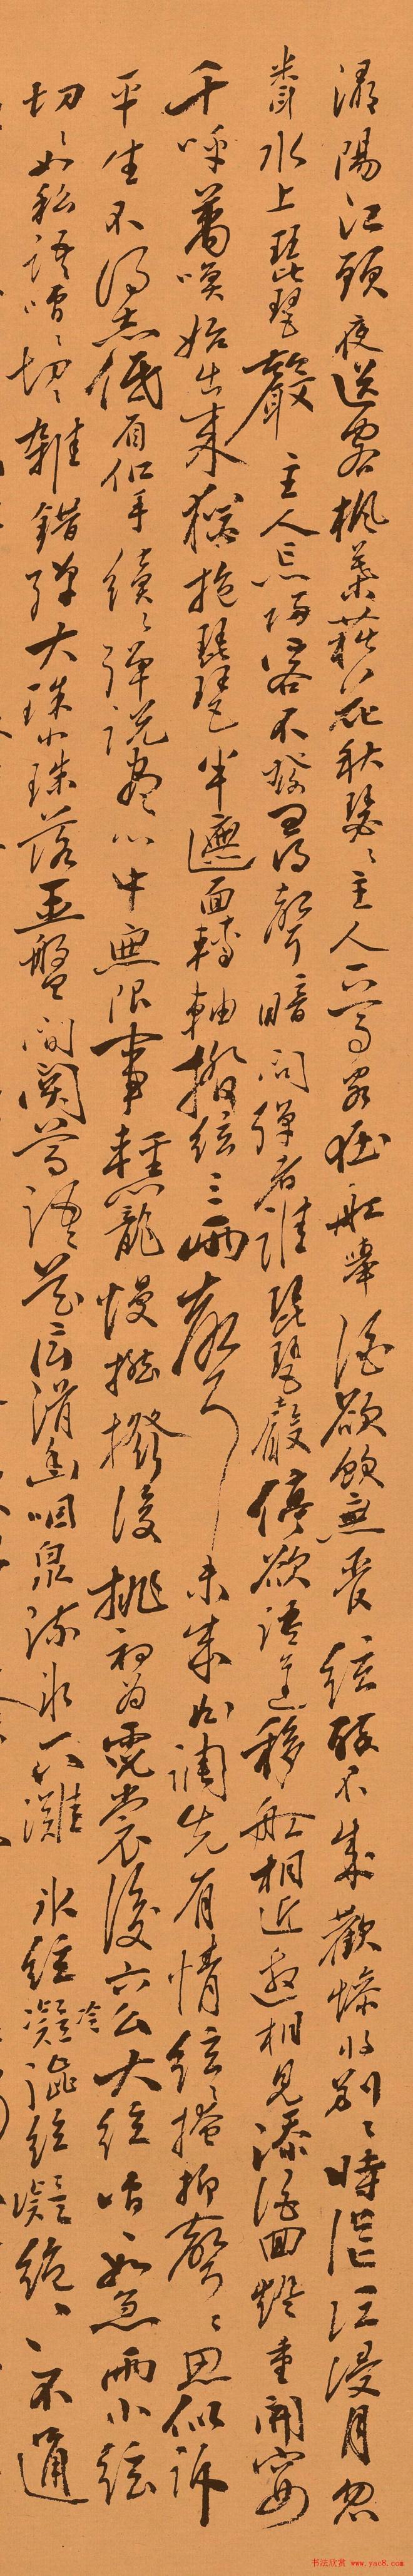 潯陽江頭夜送客楓葉荻花秋瑟〻主人下馬客在船舉酒欲飲無管絃醉不成歡慘將別〻時茫〻江浸月忽
聞水上琵琶聲主人忘歸客不發尋聲暗問彈者誰琵琶聲停欲語遲移船相近邀相見添酒回燈重開宴
千呼萬喚始出來猶抱琵琶半遮面轉軸撥絃三兩聲未成曲調先有情絃〻掩抑聲〻思似訴
平生不得志低眉信手續〻彈說盡心中無限事輕攏慢撚撥復挑初為霓裳後六么大絃嘈〻如急雨小絃
切〻如私語嘈〻切〻雜錯彈大珠小珠落玉盤間關鶯語花底滑幽咽泉流冰下灘冰絃凝冷澀絃凝絕〻不通
书法欣赏 www.yac8.com